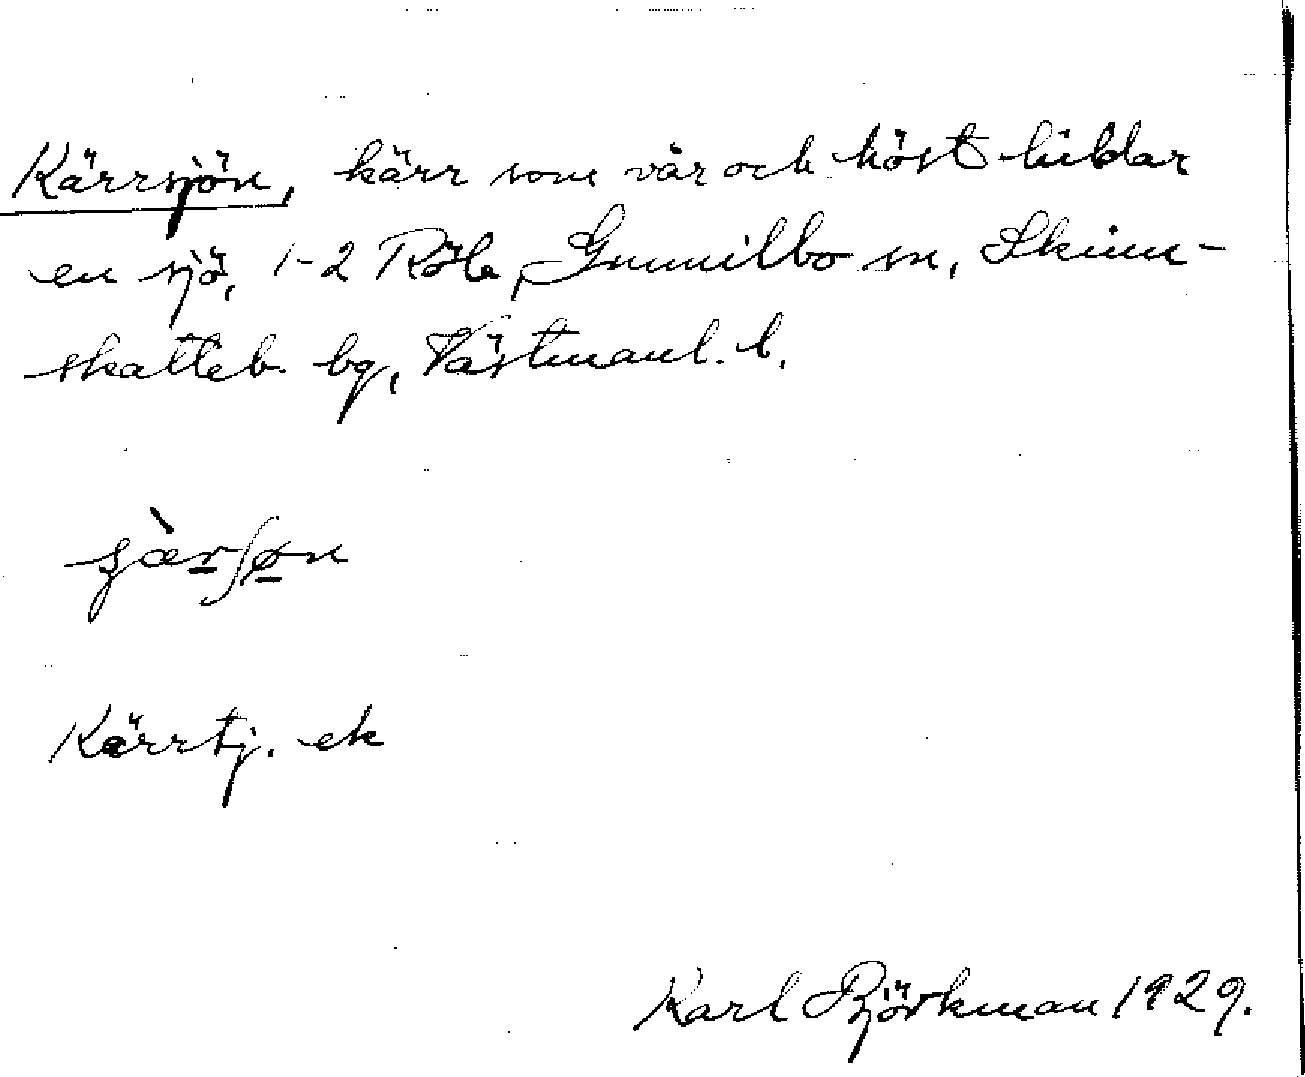 Kärrsjön, kärr som vår och höst bildar
en sjö, 1-2 Röla, Gunnilbo sn, Skinn-
skatteb. bg, Västmanl. l.
Kärrtj. ek
Karl Björkman 1929.